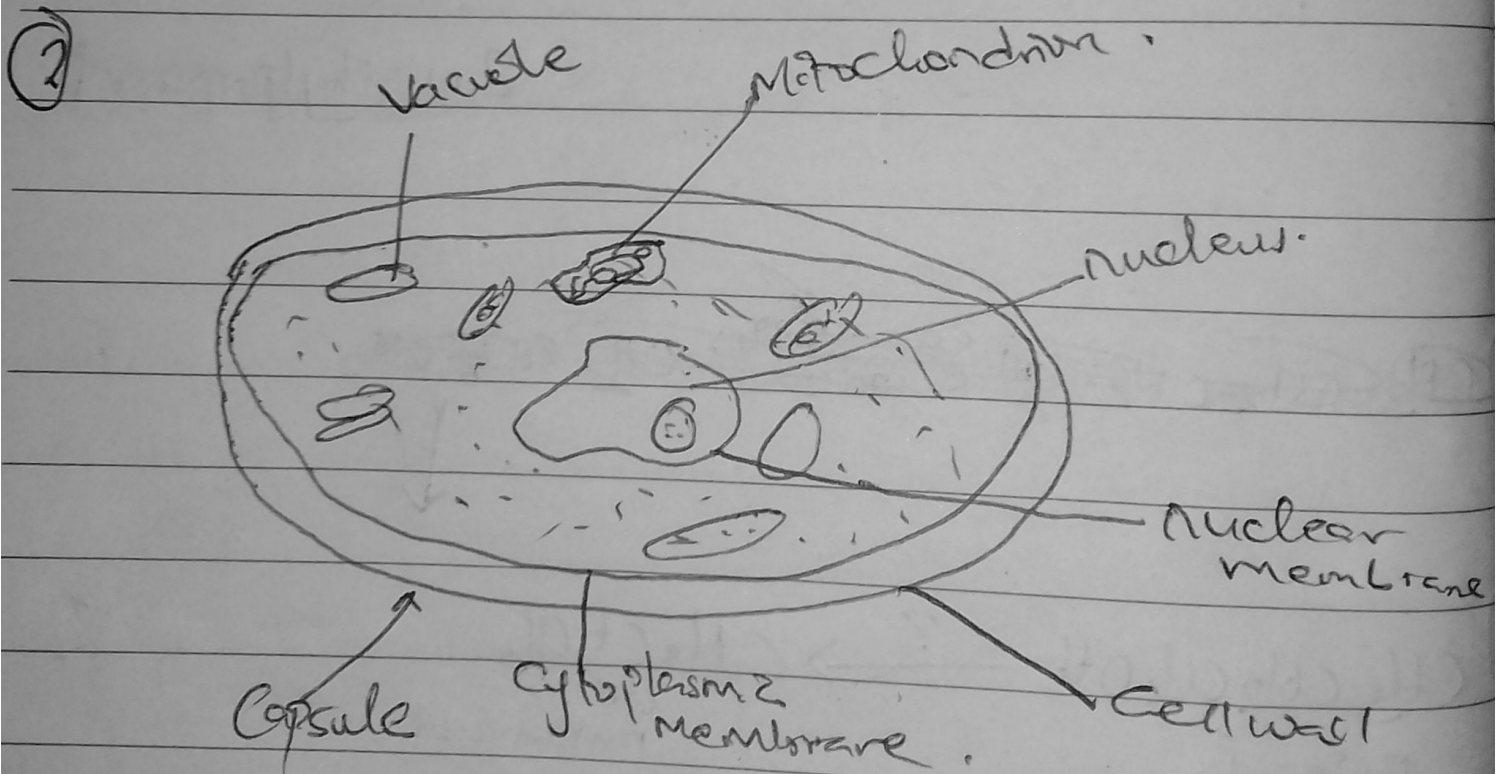 2
vacuole
Mitochondrion.
nucleus.
nuclear
membrane
Capsule
Cytoplasmic
Membrane.
Cell wall